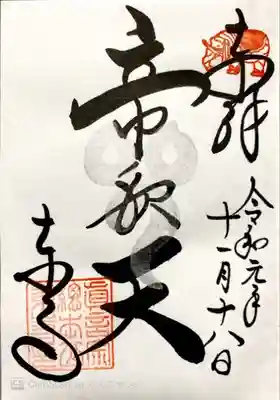 奉拝
令和元年
十一月十八日
帝釈天
東寺